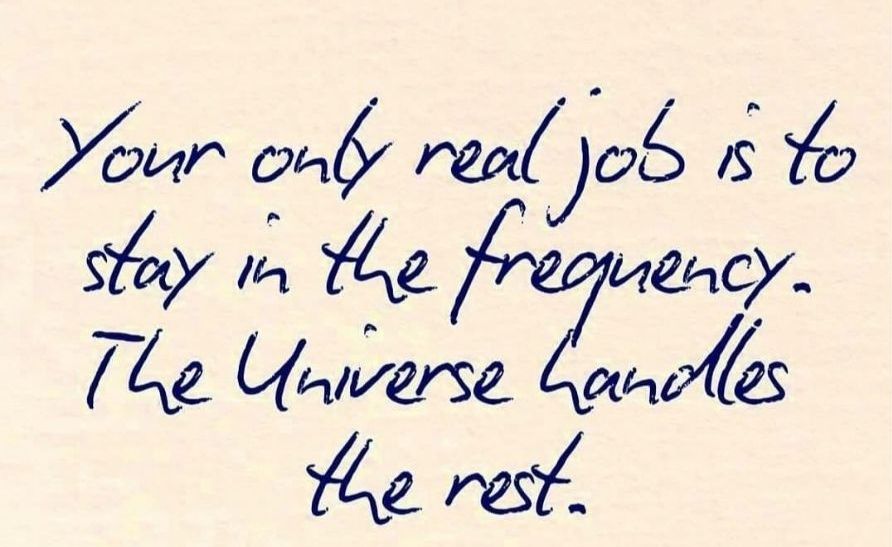 Your only real job is to
stay in the frequency.
The Universe handles
the rest.